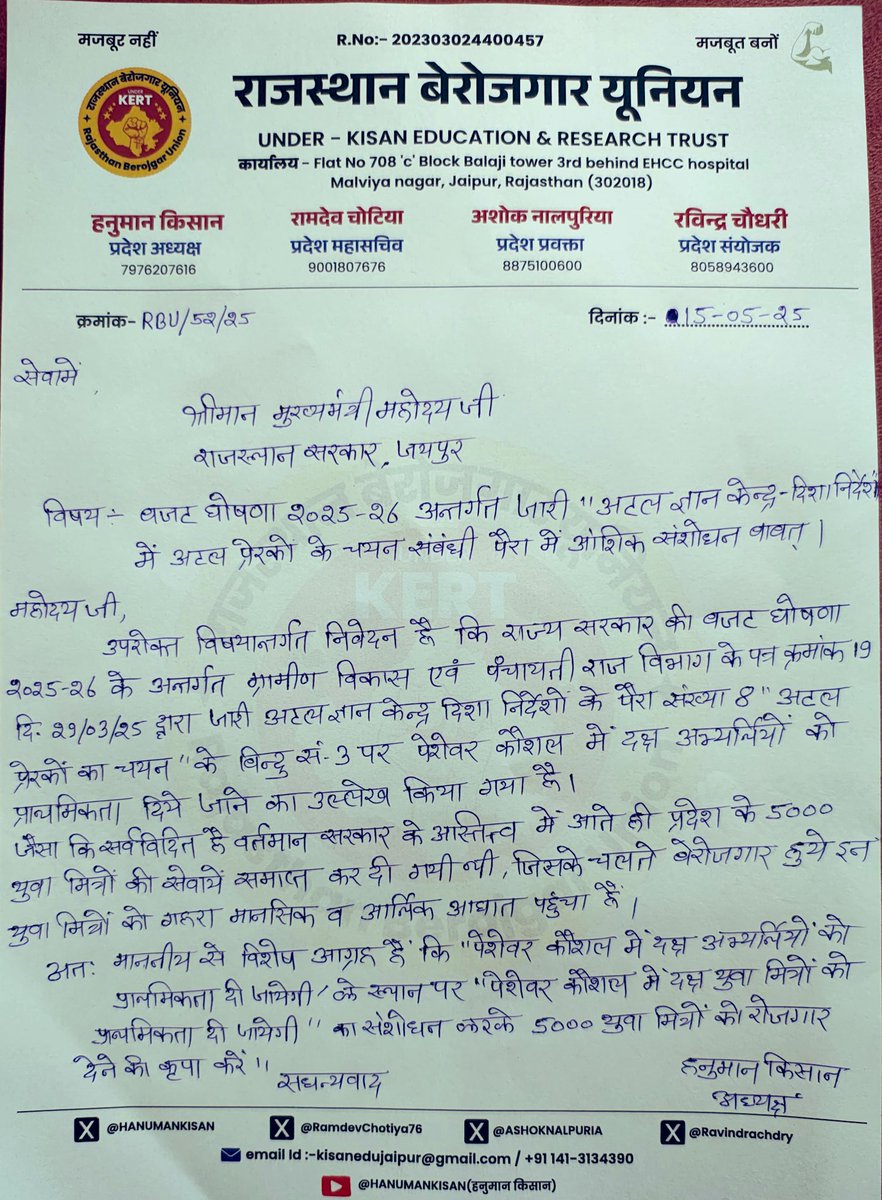 मजबूर नहीं
R.No:- 202303024400457
मजबूत बनों
राजस्थान बेरोजगार यूनियन
UNDER
KERT
Rajasthan Berojgar Union
राजस्थान बेरोजगार यूनियन
UNDER - KISAN EDUCATION & RESEARCH TRUST
कार्यालय - Flat No 708 'c' Block Balaji tower 3rd behind EHCC hospital
Malviya nagar, Jaipur, Rajasthan (302018)
हनुमान किसान
प्रदेश अध्यक्ष
7976207616
रामदेव चोटिया
प्रदेश महासचिव
9001807676
अशोक नालपुरिया
प्रदेश प्रवक्ता
8875100600
रविन्द्र चौधरी
प्रदेश संयोजक
8058943600
क्रमांक- RBU/52/25
दिनांक :- 15-05-25
सेवामें
श्रीमान मुख्यमंत्री महोदय जी
राजस्थान सरकार, जयपुर
विषय :- बजट घोषणा 2025-26 अन्तर्गत जारी "अटल ज्ञान केन्द्र-दिशा निर्देशों
में अटल प्रेरको के चयन संबंधी पैरा में आंशिक संशोधन बाबत् |
महोदय जी,
उपरोक्त विषयान्तर्गत निवेदन है कि राज्य सरकार की बजट घोषणा
2025-26 के अन्तर्गत ग्रामीण विकास एवं पंचायती राज विभाग के पत्र क्रमांक 19
दि. 29/03/25 द्वारा जारी अटल ज्ञान केन्द्र दिशा निर्देशों के पैरा संख्या 8 "अटल
प्रेरकों का चयन" के बिन्दु सं-3 पर पेशेवर कौशल में दक्ष अभ्यर्थियों को
प्राथमिकता दिये जाने का उल्लेख किया गया है।
जैसा कि सर्वविदित है वर्तमान सरकार के अस्तित्व में आते ही प्रदेश के 5000
युवा मित्रों की सेवायें समाप्त कर दी गयी थी, जिसके चलते बेरोजगार हुये इन
युवा मित्रों को गहरा मानसिक व आर्थिक आघात पहुंचा है |
अतः माननीय से विशेष आग्रह है कि "पेशेवर कौशल में दक्ष अभ्यर्थियों को
प्राथमिकता दी जायेगी' के स्थान पर "पेशेवर कौशल में दक्ष युवा मित्रों को
प्राथमिकता दी जायेगी" का संशोधन करके 5000 युवा मित्रों को रोजगार
देने की कृपा करें"
सधन्यवाद
हनुमान किसान
अध्यक्ष
@HANUMANKISAN
@RamdevChotiya76
@ASHOKNALPURIA
@Ravindrachdry
email Id :-kisanedujaipur@gmail.com / +91 141-3134390
@HANUMANKISAN(हनुमान किसान)